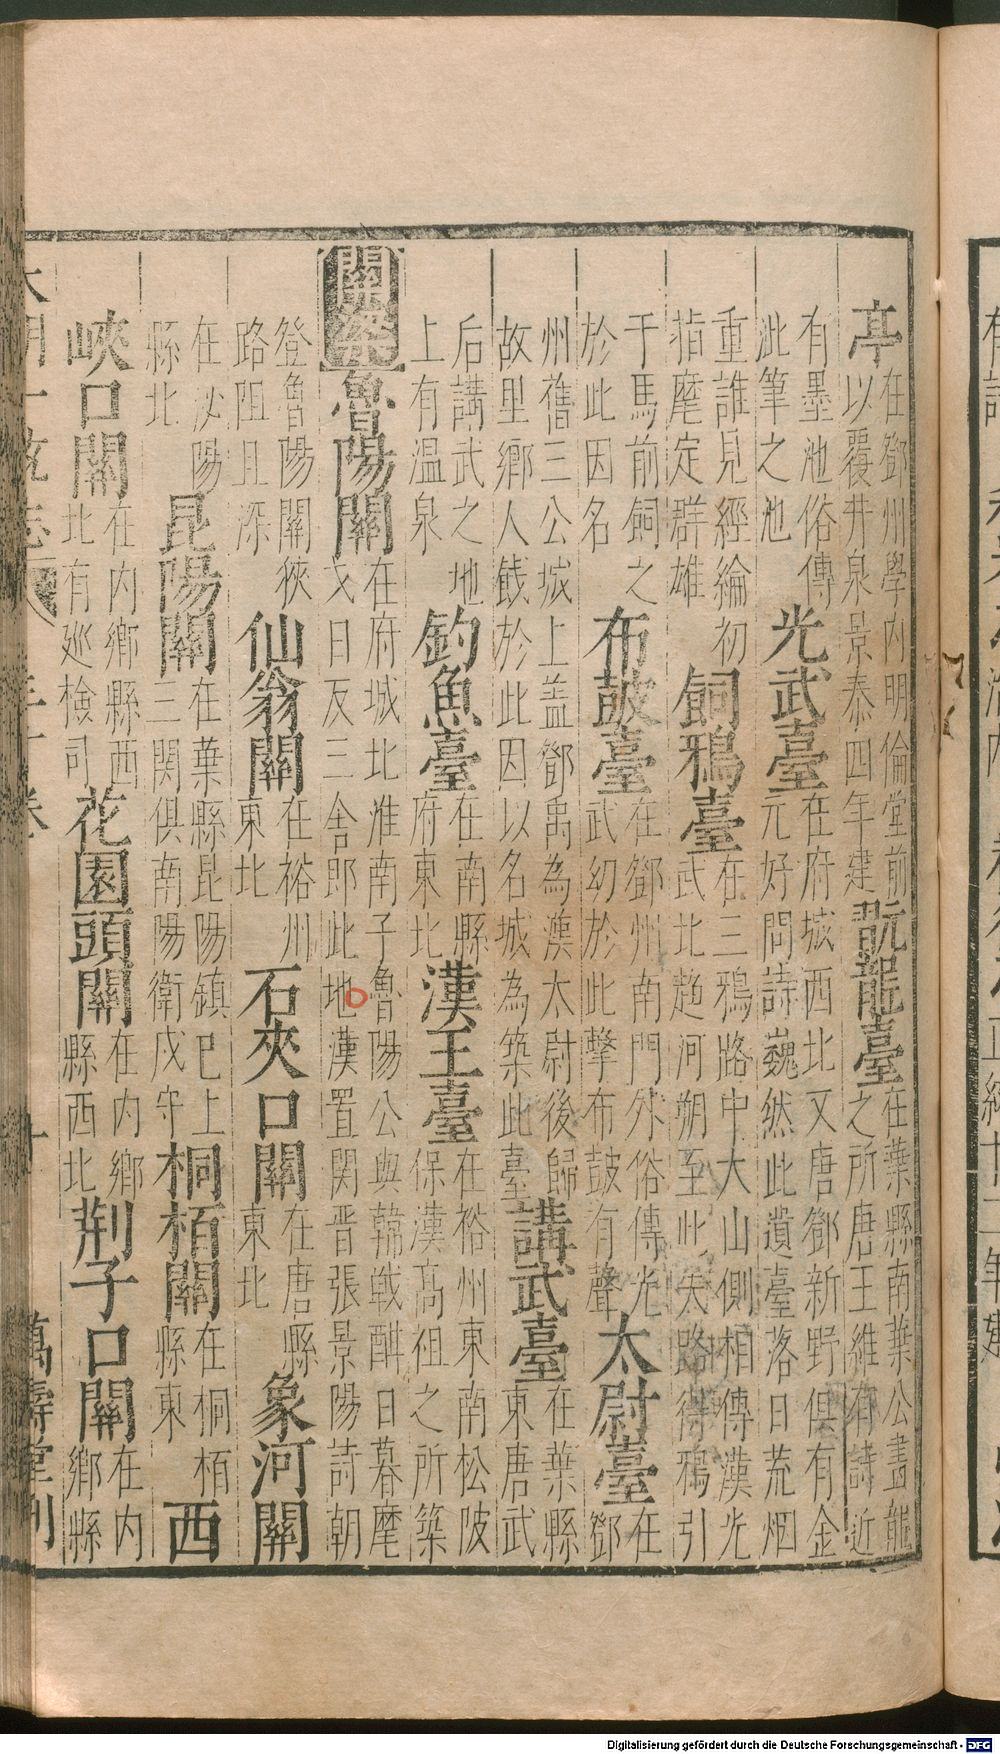 亭在鄧州學內明倫堂前以覆井泉景泰四年建翫龍臺在葉縣南葉公畫龍之所唐王維有詩近
有墨池俗傳此筆之池光武臺在府城西北又唐鄧新野俱有金元好問詩巍然此遺臺落日荒烟
重誰見經綸初指麾定群雄飼鴉臺在三鴉路中大山側相傳漢光武北趍河朔至此失路得鴉引
于馬前飼之於此因名布鼓臺在鄧州南門外俗傳光武幼於此擊布鼓有聲太尉臺在鄧
州舊三公城上蓋鄧禹為漢太尉後歸故里鄉人餞於此因以名城為築此臺講武臺在葉縣東唐武
后講武之地上有溫泉釣魚臺在南縣府東北漢王臺在裕州東南松陂保漢高祖之所築
關梁魯陽關在府城北淮南子魯陽公與韓戰酣日暮麾戈日反三舍郎此地漢置関晋張景陽詩朝
登魯陽關狹路阻且深仙翁關在裕州東北石夾口關在唐縣東北象河關
在泌陽縣北昆陽關在葉縣昆陽鎮已上三関俱南陽衛戍守桐栢關在桐栢縣東西
峽口關在内鄉縣西北有廵檢司花園頭關在内鄉縣西北荆子口關在内鄉縣
大明一統志
三十卷
十
萬壽堂刊
Digitalisierung gefördert durch die Deutsche Forschungsgemeinschaft - DFG